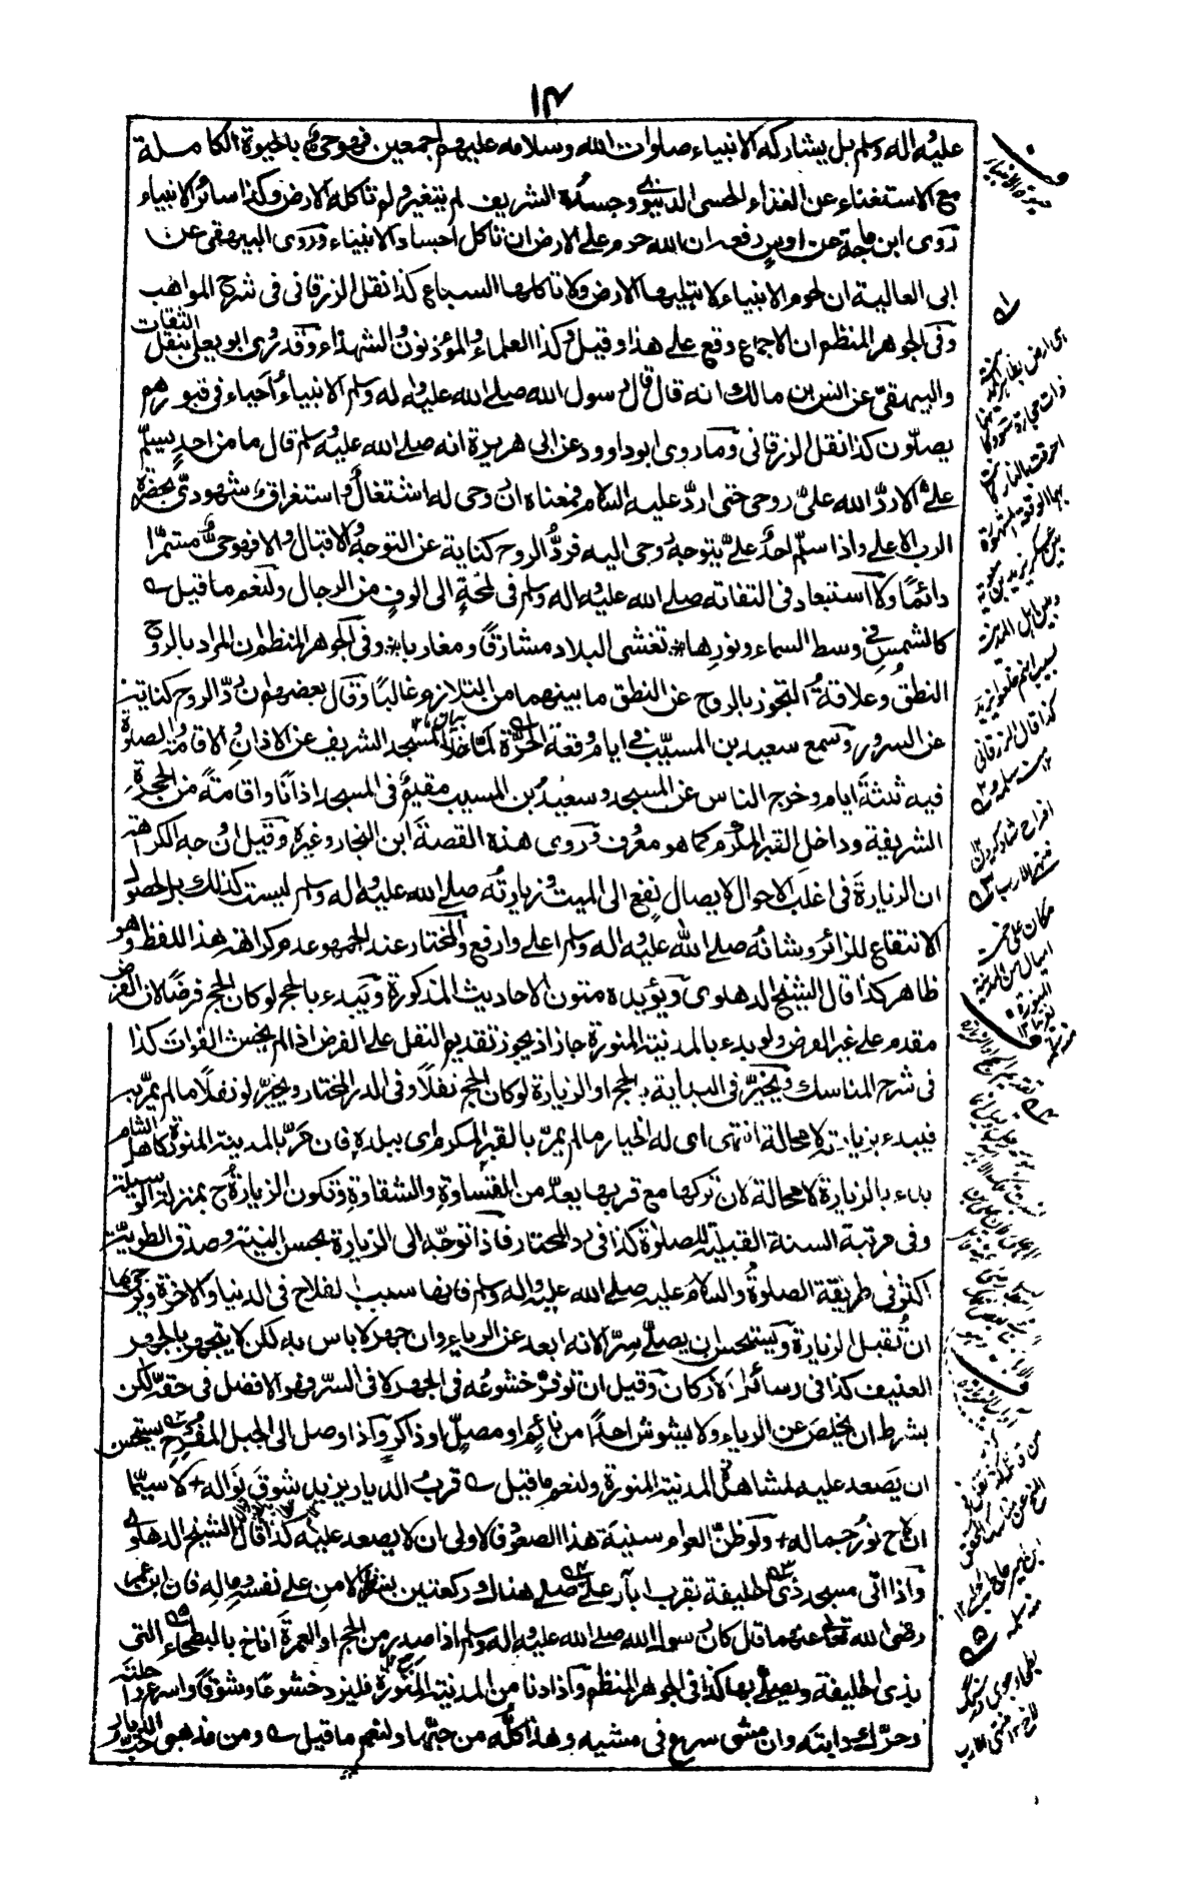 ١٣
عليه واله وسلم بل يشاركه الانبياء صلوات الله وسلامه عليهم اجمعين فهو حي بالحيوة الكاملة
مع الاستغناء عن الغذاء الحسي الدنيوي وجسده الشريف لم يتغير ولم تاكله الارض وكذا سائر الانبياء
روى ابن ماجة عن اوس رفعه ان الله حرم على الارض ان تاكل اجساد الانبياء وروى البيهقي عن
ابي العالية ان لحوم الانبياء لا تبليها الارض ولا تاكلها السباع كذا نقل الزرقاني في شرح المواهب
وفي الجوهر المنظم ان الاجماع وقع على هذا وقيل وكذا العلماء والمؤذنون والشهداء وقد روى ابو يعلى بنقل الثقات
والبيهقي عن انس بن مالك انه قال قال رسول الله صلى الله عليه واله وسلم الانبياء احياء في قبورهم
يصلون كذا نقل الزرقاني وما روى ابو داوود عن ابي هريرة انه صلى الله عليه وسلم قال ما من احد يسلم
علي الا رد الله علي روحي حتى ارد عليه السلام فمعناه ان روحي له اشتغال واستغراق شهودي بحضرة
الرب الاعلى واذا سلم احد علي يتوجه روحي اليه فرد الروح كناية عن التوجه والاقبال والا فهو حي مستمرا
دائما ولا استبعاد في التفاته صلى الله عليه واله وسلم في لمحة الى الوف من الرجال ولنعم ما قيل
كالشمس في وسط السماء ونورها تغشى البلاد مشارقا ومغاربا وفي الجوهر المنظم ان المراد بالروح
النطق وعلاقة التجوز بالروح عن النطق ما بينهما من التلازم غالبا وقال بعضهم ان رد الروح كناية
عن السرور وسمع سعيد بن المسيب في ايام وقعة الحرة لما خلا المسجد الشريف عن الاذان والاقامة والصلوة
فيه ثلثة ايام وخرج الناس عن المسجد وسعيد بن المسيب مقيم في المسجد اذانا واقامة من الحجرة
الشريفة وداخل القبر المكرم كما هو معروف وروى هذه القصة ابن النجار وغيره وقيل ان وجه الكراهة
ان الزيارة في اغلب الاحوال لايصال نفع الى الميت وزيارته صلى الله عليه واله وسلم ليست كذلك بل لحصول
الانتفاع للزائر وشانه صلى الله عليه واله وسلم اعلى وارفع والمختار عند الجمهور عدم كراهة هذا اللفظ وهو
ظاهر كذا قال الشيخ الدهلوي ويؤيده متون الاحاديث المذكورة ويبدء بالحج لو كان الحج فرضا لان الفرض
مقدم على غير الفرض ولو بدء بالمدينة المنورة جاز اذ يجوز تقديم النفل على الفرض اذا لم يخش الفوات كذا
في شرح المناسك ويخير في البداية بالحج او الزيارة لو كان الحج نفلا وفي الدر المختار ويخير لو نفلا ما لم يمر به
فيبدء بزيارته لا محالة انتهى اي له الخيار ما لم يمر بالقبر المكرم اي ببلده فان مر بالمدينة المنورة كاهل الشام
بدء بالزيارة لا محالة لان تركها مع قربها يعد من القساوة والشقاوة وتكون الزيارة ح بمنزلة الوسيلة
وفي مرتبة السنة القبلية للصلوة كذا في رد المحتار فاذا توجه الى الزيارة بحسن النية وصدق الطوية
اكثر في طريقة الصلوة والسلام عليه صلى الله عليه واله وسلم فانها سبب الفلاح في الدنيا والاخرة ويرجى بها
ان تقبل الزيارة ويستحسن ان يصلي سرا لانه ابعد عن الرياء وان جهر لا باس به لكن لا يتجهر بالجهر
العنيف كذا في رسائل الاركان وقيل ان توفر خشوعه في الجهر لا في السر فهو الافضل في حقه لكن
بشرط ان يخلص عن الرياء ولا يشوش احدا من نائم او مصل او ذاكر واذا وصل الى الجبل المفرح يستحسن
ان يصعد عليه لمشاهدة المدينة المنورة ولنعم ما قيل قرب الديار يزيد شوق نواله لا سيما
ان لاح نور جماله ولو ظن العوام سنية هذا الصعود فالاولى ان لا يصعد عليه كذا قال الشيخ الدهلوي
واذا اتى مسجد ذي الحليفة بقرب ابار علي صلى هناك ركعتين بشرط الامن على نفسه وماله فان ابن عمر
رضي الله تعالى عنهما قال كان رسول الله صلى الله عليه واله وسلم اذا صدر من الحج او العمرة اناخ بالبطحاء التي
بذي الحليفة ويصلي بها كذا في الجوهر المنظم واذا دنا من المدينة المنورة فليزد خشوعا وشوقا واسرع راحلته
وحرك دابته وان مشى سرع في مشيه وهذا كله من حبها ولنعم ما قيل ومن مذهبي حب الديار
اي ارض بظاهر المدينة
ذات حجارة سود كانها
احرقت بالنار كانت
بها الوقعة المشهورة
بين عسكر يزيد بن معوية
وبين اهل المدينة
بسبب انهم خلعوا يزيد
كذا قال الزرقاني